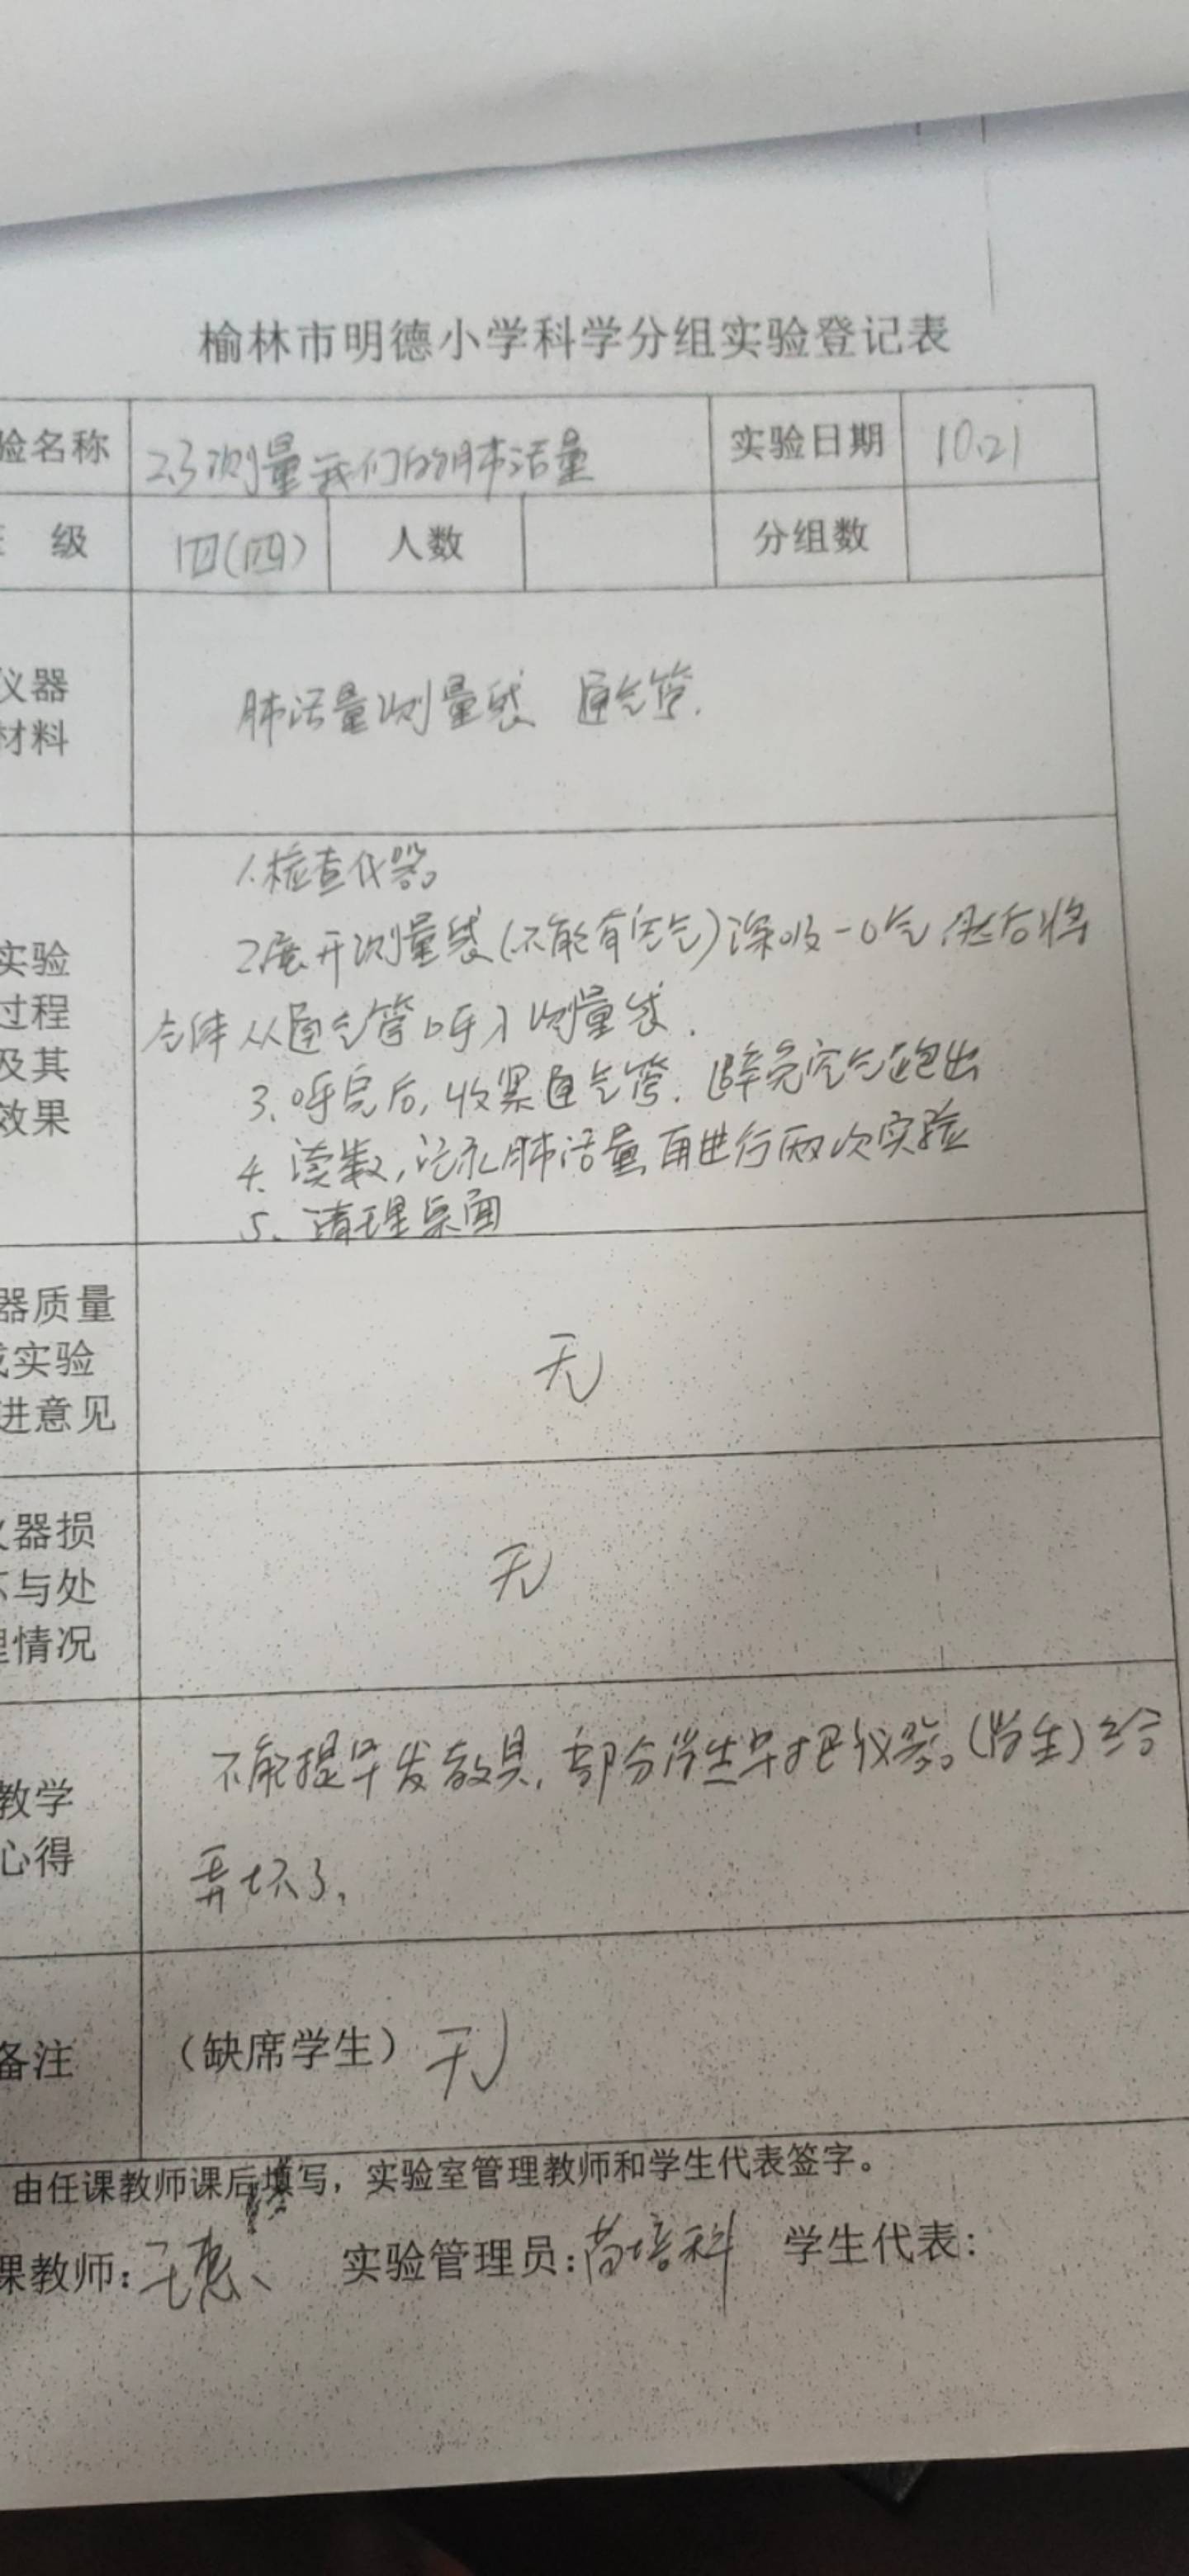 榆林市明德小学科学分组实验登记表
验名称 2.3测量我们的肺活量 实验日期 10.21
级 四(四) 人数 分组数
仪器
材料
肺活量测量袋 通气管.
实验
过程
及其
效果
1.检查仪器。
2.展开测量袋(不能有空气)深吸一口气 然后将
气体从通气管呼入测量袋.
3.呼完后,收紧通气管.避免空气跑出
4.读数,记录肺活量,再进行两次实验
5、清理桌面
器质量
或实验
进意见
无
仪器损
坏与处
理情况
无
教学
心得
不能提早发教具,部分学生早把仪器。(学生)给
弄坏了,
备注
(缺席学生) 无
由任课教师课后填写,实验室管理教师和学生代表签字。
课教师: 王惠 实验管理员: 苗培科 学生代表: